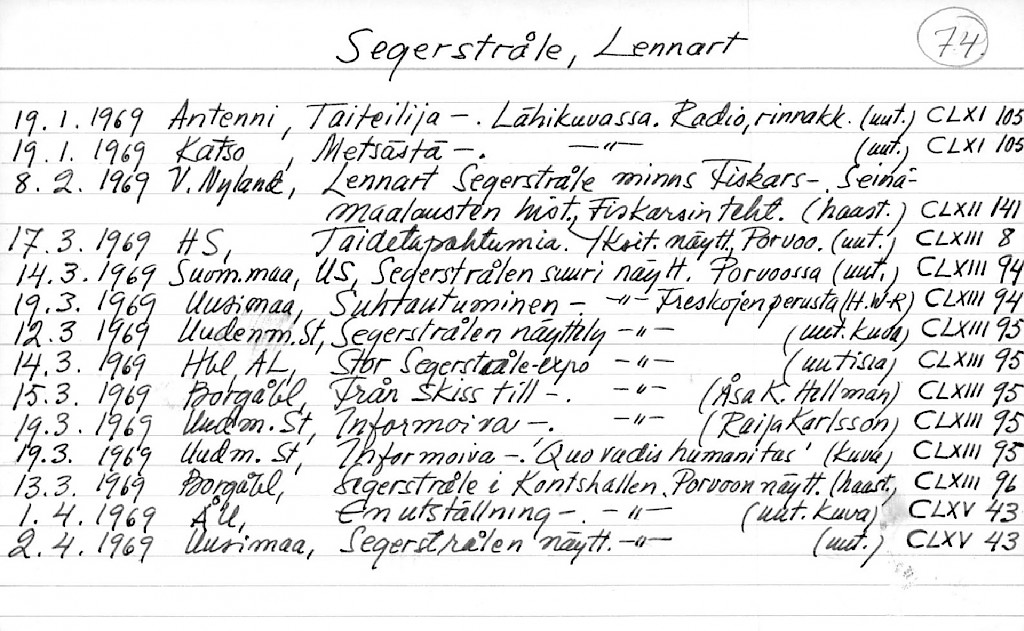 Segerstråle, Lennart 74.
19.1.1969 Antenni, Taiteilija -. Lähikuvassa. Radio, rinnakk. (uut.) CLXI 105
19.1.1969 Katso, Metsästä -. -"- (uut.) CLXI 105
8.2.1969 V. Nyland, Lennart Segerstråle minns Fiskars -. Seinä-
maalausten hist., Fiskarsin teht. (haast.) CLXII 141
17.3.1969 HS, Taidetapahtumia. Yksit. näytt., Porvoo. (uut.) CLXIII 8
14.3.1969 Suom.maa, US, Segerstrålen suuri näytt. Porvoossa (uut.) CLXIII 94
19.3.1969 Uusimaa, Suhtautuminen -. -"- Freskojen perusta (H.W-R) CLXIII 94
12.3 1969 Uudenm. St, Segerstrålen näyttely -"- (uut. kuva) CLXIII 95
14.3.1969 Hbl, AL, Stor Segerstråle-expo -"- (uutisia) CLXIII 95
15.3.1969 Borgåbl, Från Skiss till -. -"- (Åsa K. Hellman) CLXIII 95
19.3.1969 Uudm. St, Informoiva -. -"- (Raija Karlsson) CLXIII 95
19.3.1969 Uudm. St, Informoiva -. 'Quo vadis humanitas' (kuva) CLXIII 95
13.3.1969 Borgåbl, Segerstråle i Konstshallen. Porvoon näytt. (haast, CLXIII 96
1.4.1969 ÅU, En utställning -. -"- (uut. kuva) CLXV 43
2.4.1969 Uusimaa, Segerstrålen näytt. -"- (uut.) CLXV 43